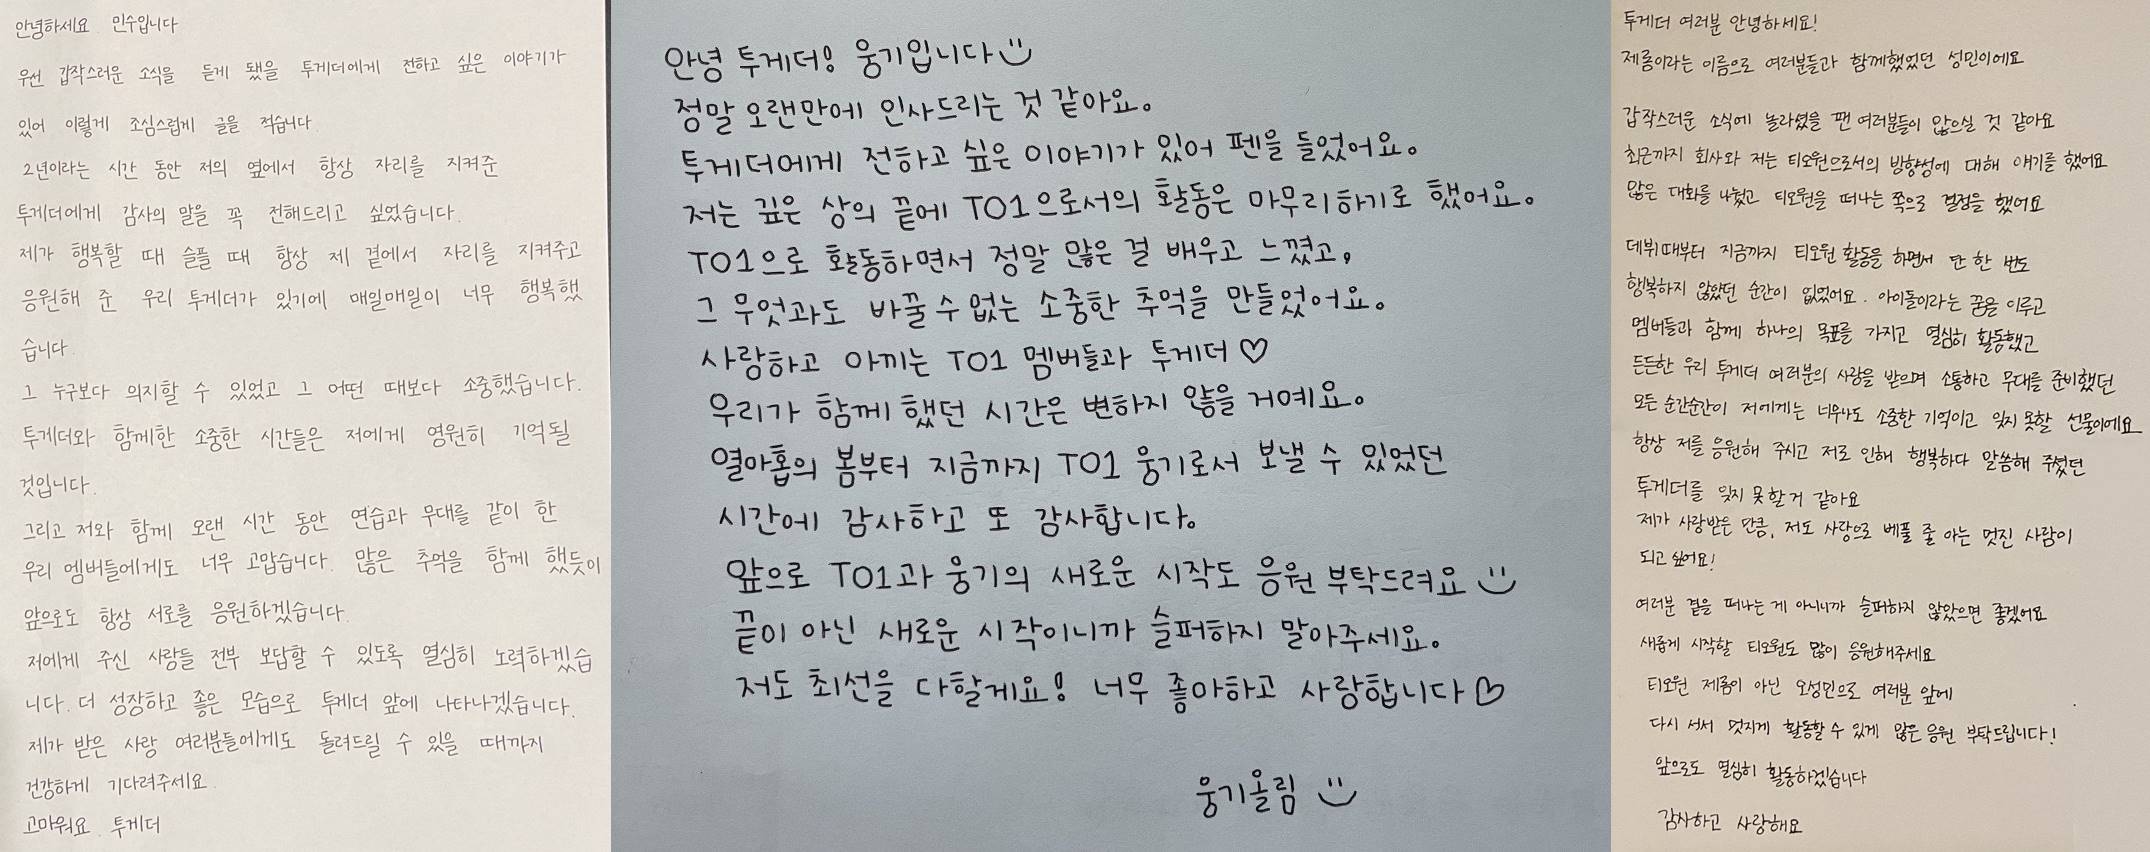 안녕하세요 민수입니다
우선 갑작스러운 소식을 듣게 됐을 투게더에게 전하고 싶은 이야기가
있어 이렇게 조심스럽게 글을 적습니다
2년이라는 시간 동안 저의 옆에서 항상 자리를 지켜준
투게더에게 감사의 말을 꼭 전해드리고 싶었습니다.
제가 행복할 때 슬플 때 항상 제 곁에서 자리를 지켜주고
응원해 준 우리 투게더가 있기에 매일매일이 너무 행복했
습니다.
그 누구보다 의지할 수 있었고 그 어떤 때보다 소중했습니다.
투게더와 함께한 소중한 시간들은 저에게 영원히 기억될
것입니다.
그리고 저와 함께 오랜 시간 동안 연습과 무대를 같이 한
우리 멤버들에게도 너무 고맙습니다. 많은 추억을 함께 했듯이
앞으로도 항상 서로를 응원하겠습니다.
저에게 주신 사랑들 전부 보답할 수 있도록 열심히 노력하겠습
니다. 더 성장하고 좋은 모습으로 투게더 앞에 나타나겠습니다.
제가 받은 사랑 여러분들에게도 돌려드릴 수 있을 때까지
건강하게 기다려주세요.
고마워요. 투게더
안녕 투게더! 웅기입니다
정말 오랜만에 인사드리는 것 같아요.
투게더에게 전하고 싶은 이야기가 있어 펜을 들었어요.
저는 깊은 상의 끝에 TO1으로서의 활동은 마무리하기로 했어요.
TO1으로 활동하면서 정말 많은 걸 배우고 느꼈고,
그 무엇과도 바꿀 수 없는 소중한 추억을 만들었어요.
사랑하고 아끼는 TO1 멤버들과 투게더♡
우리가 함께 했던 시간은 변하지 않을 거예요.
열아홉의 봄부터 지금까지 TO1 웅기로서 보낼 수 있었던
시간에 감사하고 또 감사합니다.
앞으로 TO1과 웅기의 새로운 시작도 응원 부탁드려요
끝이 아닌 새로운 시작이니까 슬퍼하지 말아주세요.
저도 최선을 다할게요! 너무 좋아하고 사랑합니다♡
웅기올림
투게더 여러분 안녕하세요!
제롬이라는 이름으로 여러분들과 함께했었던 성민이에요
갑작스러운 소식에 놀라셨을 팬 여러분들이 많으실 것 같아요
최근까지 회사와 저는 티오원으로서의 방향성에 대해 얘기를 했어요
많은 대화를 나눴고 티오원을 떠나는 쪽으로 결정을 했어요
데뷔때부터 지금까지 티오원 활동을 하면서 단 한 번도
행복하지 않았던 순간이 없었어요. 아이돌이라는 꿈을 이루고
멤버들과 함께 하나의 목표를 가지고 열심히 활동했고
든든한 우리 투게더 여러분의 사랑을 받으며 소통하고 무대를 준비했던
모든 순간순간이 저에게는 너무나도 소중한 기억이고 잊지 못할 선물이에요
항상 저를 응원해 주시고 저로 인해 행복하다 말씀해 주셨던
투게더를 잊지 못할거 같아요
제가 사랑받은 만큼, 저도 사랑으로 베풀 줄 아는 멋진 사람이
되고 싶어요!
여러분 곁을 떠나는 게 아니니까 슬퍼하지 않았으면 좋겠어요
새롭게 시작할 티오원도 많이 응원해주세요
티오원 제롬이 아닌 오성민으로 여러분 앞에
다시 서서 멋지게 활동할 수 있게 많은 응원 부탁드립니다!
앞으로도 열심히 활동하겠습니다
감사하고 사랑해요